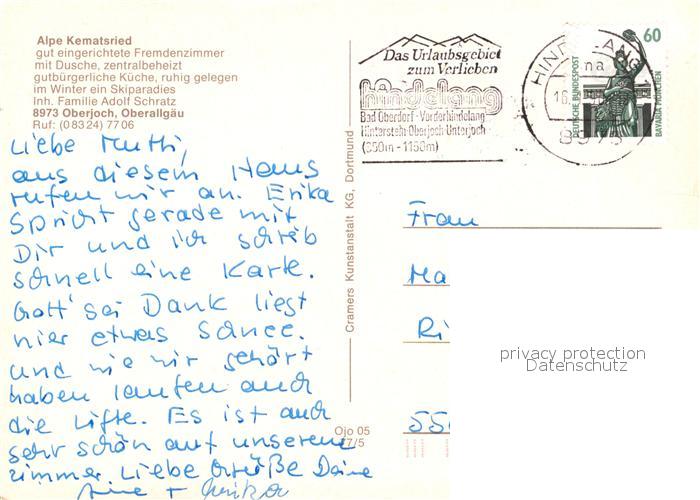 Alpe Kematsried
gut eingerichtete Fremdenzimmer
mit Dusche, zentralbeheizt
gutbürgerliche Küche, ruhig gelegen
im Winter ein Skiparadies
Inh. Familie Adolf Schratz
8973 Oberjoch, Oberallgäu
Ruf: (0 83 24) 77 06
Liebe Mutti,
aus diesem Haus
rufen wir an. Erika
spricht gerade mit
Dir und ich schreib
schnell eine Karte.
Gott sei Dank liegt
hier etwas Schnee.
und wie wir gehört
haben laufen auch
die Lifte. Es ist auch
sehr schön auf unserem
Zimmer. Liebe Grüße Deine
Cramers Kunstanstalt KG, Dortmund
Ojo 05
7/5
Das Urlaubsgebiet
zum Verlieben
hindelang
Bad Oberdorf-Vorderhindelang
Hinterstein-Oberjoch-Unterjoch
(850m-1150m)
HINDELANG 1
na
16.
8973
60
DEUTSCHE BUNDESPOST
BAVARIA MÜNCHEN
Frau
Ma
Ri
55
privacy protection
Datenschutz